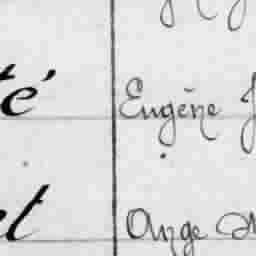 té Eugène J
et Ange